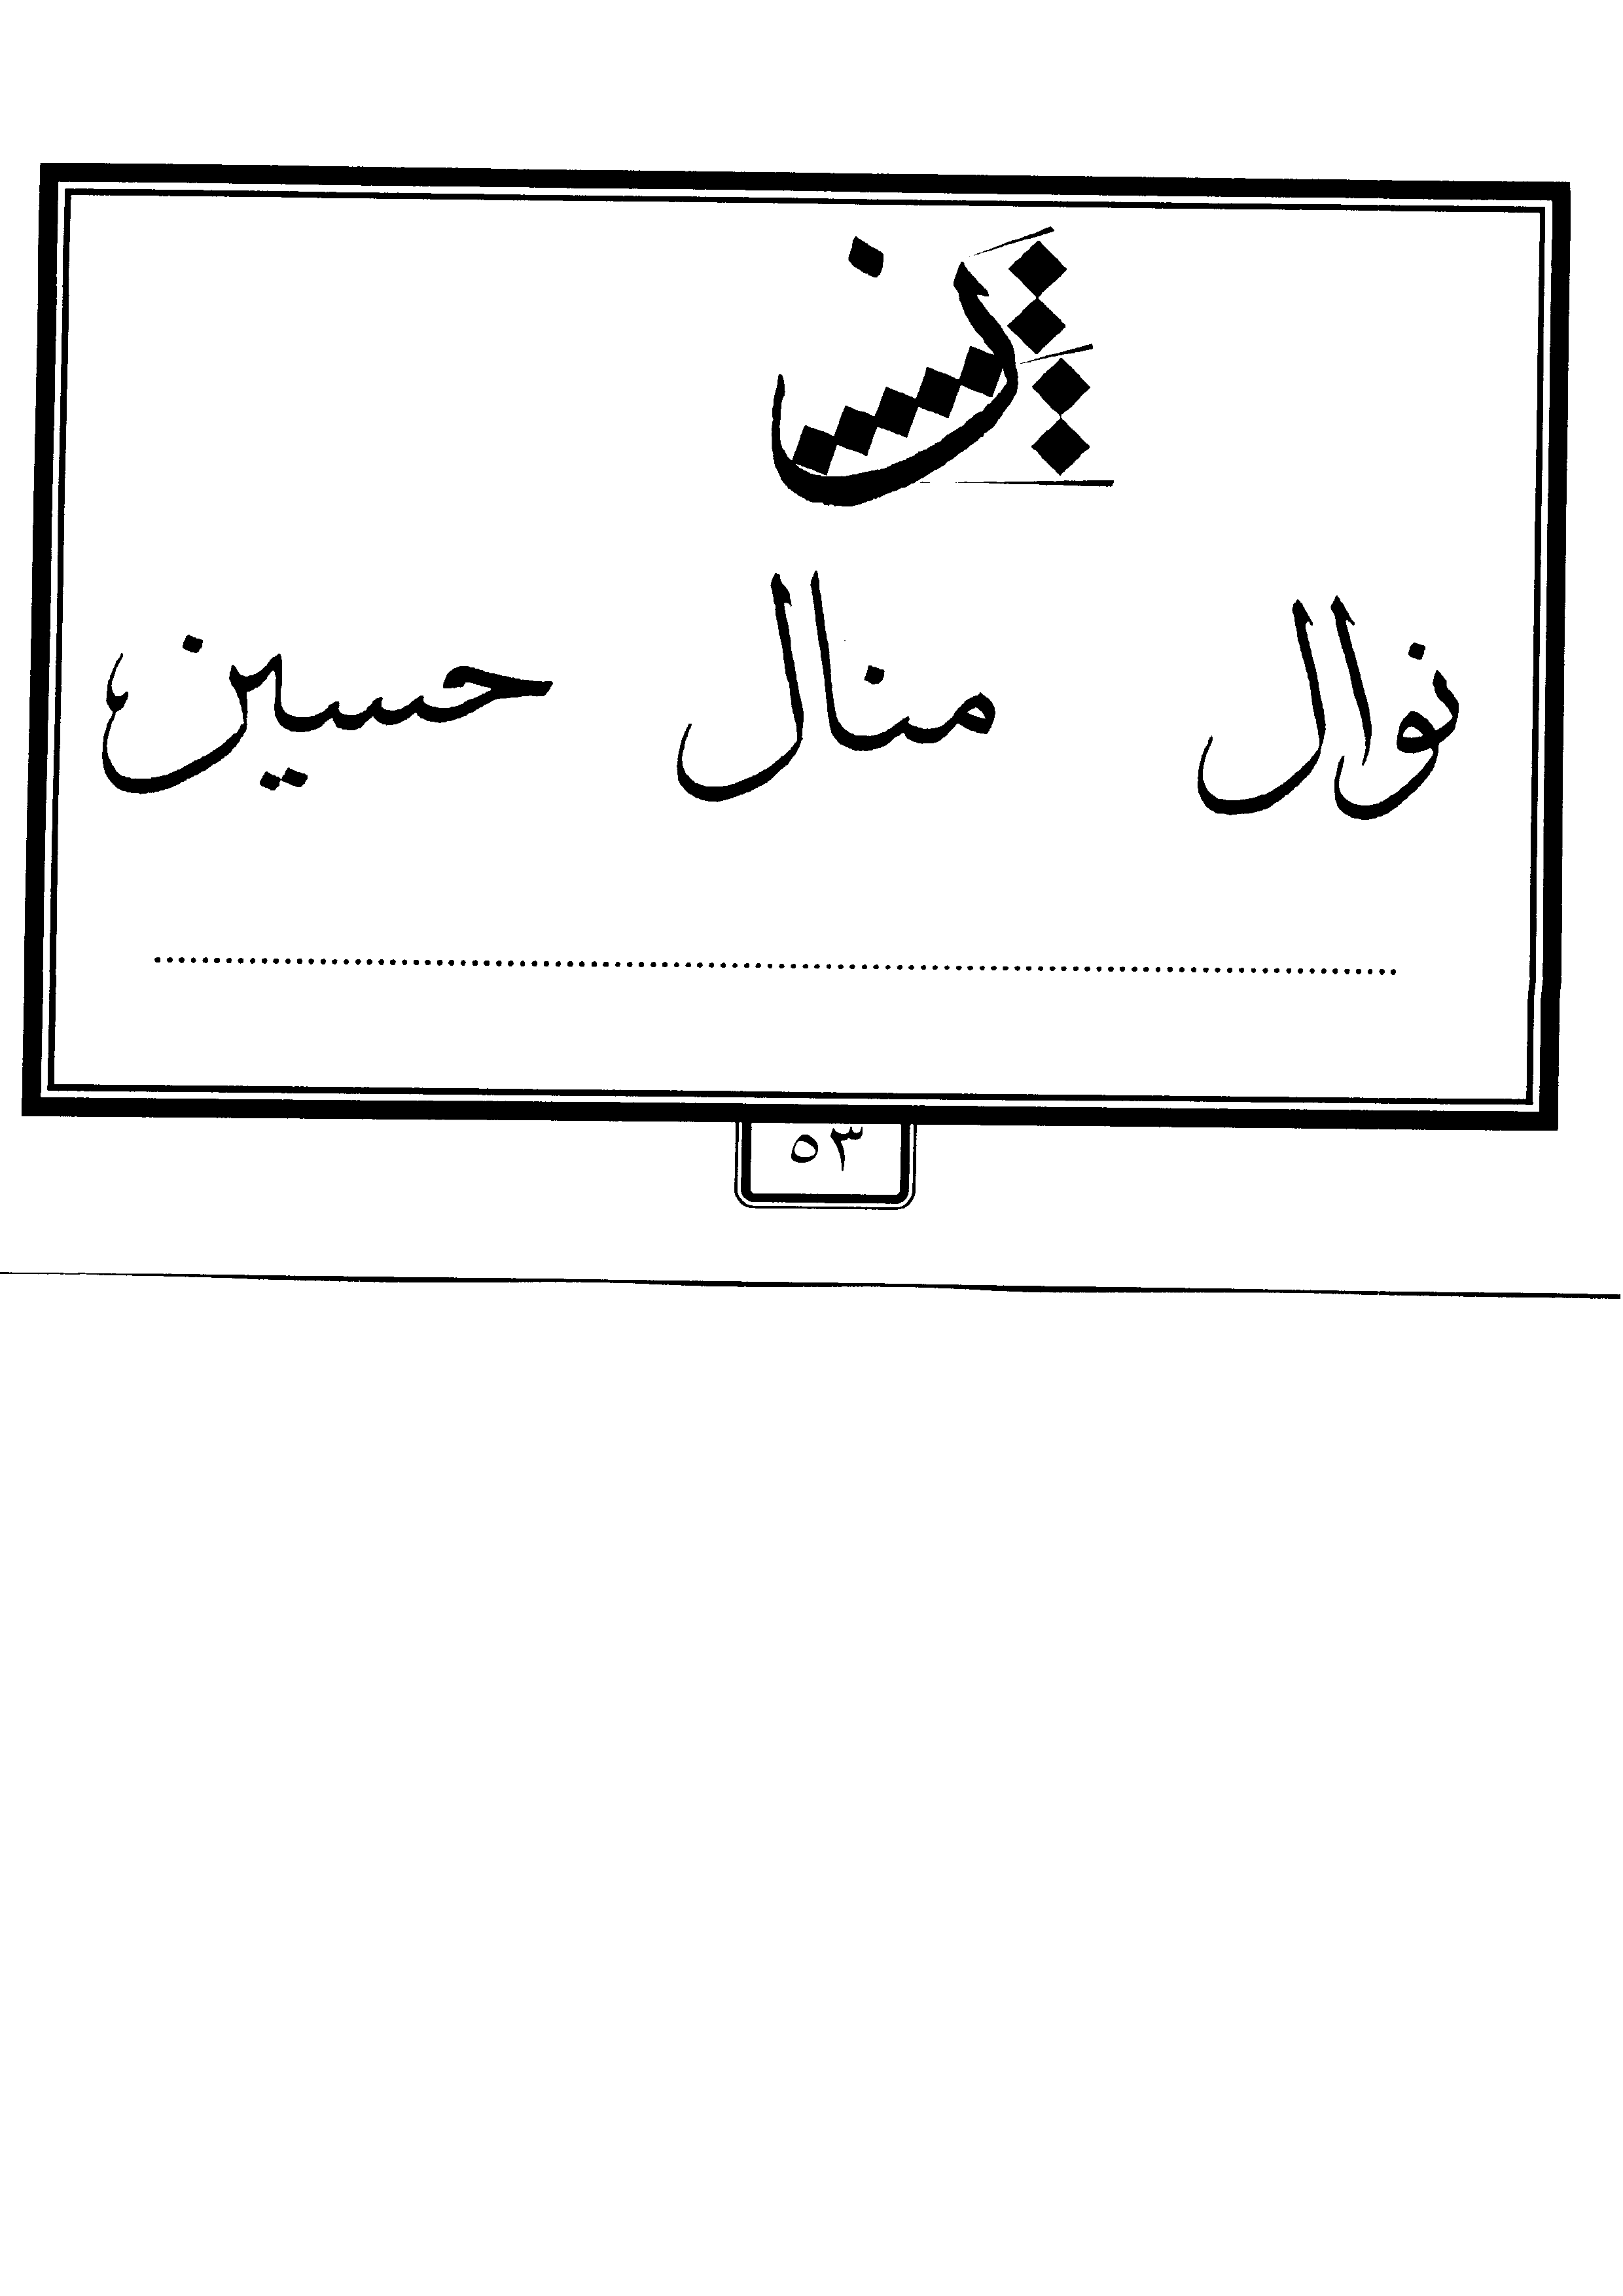 ن
نوال منال حسين
٥٣